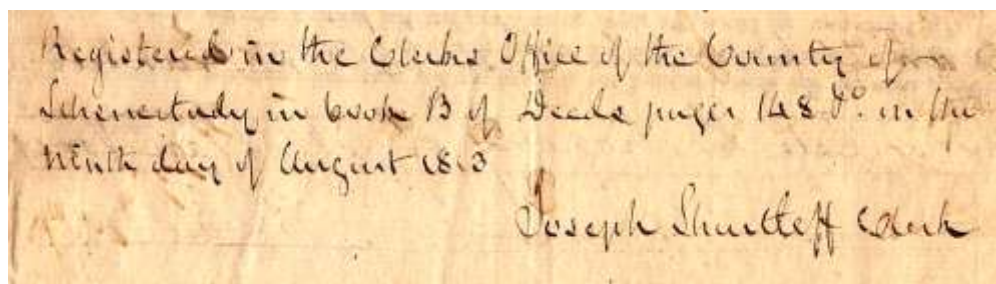 Registered in the Clerks Office of the County of
Schenectady in book B of Deeds pages 148 &c. in the
Ninth day of August 1813
Joseph Shurtleff Clerk